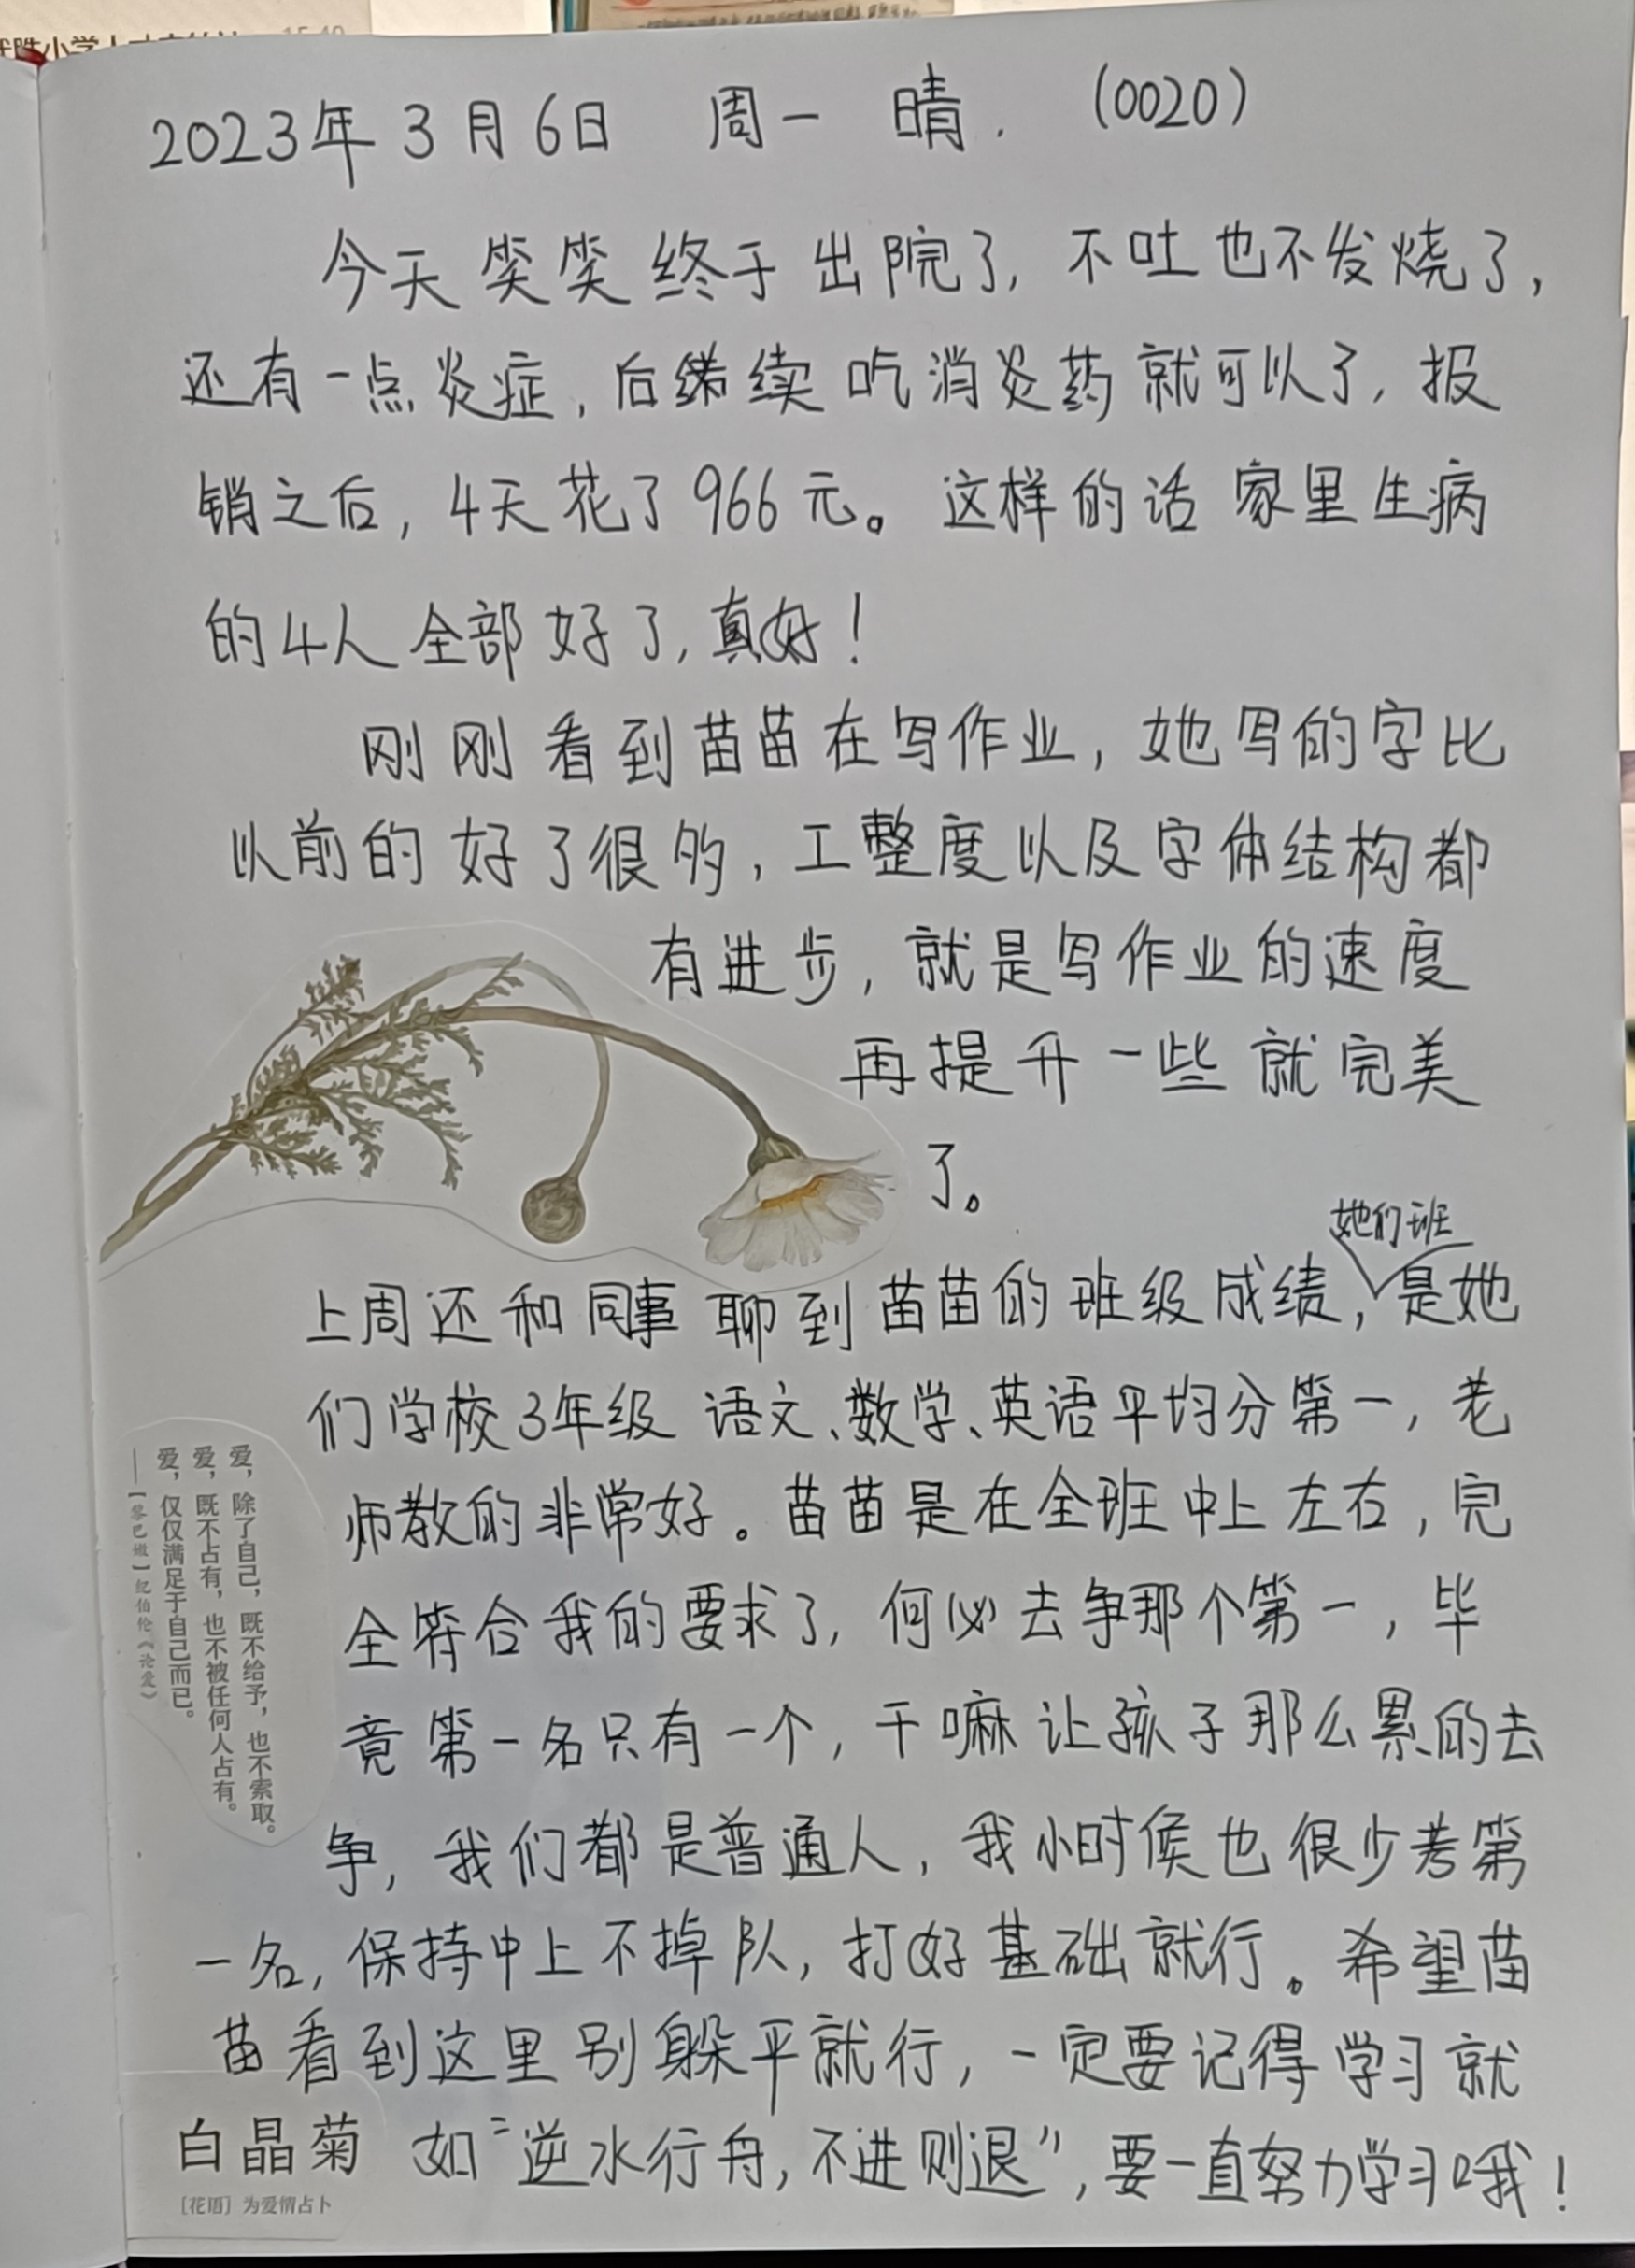 2023年3月6日 周一 晴. (0020)
今天笑笑终于出院了,不吐也不发烧了,
还有一点炎症,后续吃消炎药就可以了,报
销之后,4天花了966元。这样的话家里生病
的4人全部好了,真好!
刚刚看到苗苗在写作业,她写的字比
以前的好了很多,工整度以及字体结构都
有进步,就是写作业的速度
再提升一些就完美
了。
她们班
上周还和同事聊到苗苗的班级成绩,是她
们学校3年级语文、数学、英语平均分第一,老
师教的非常好。苗苗是在全班中上左右,完
全符合我的要求了,何必去争那个第一,毕
竟第一名只有一个,干嘛让孩子那么累的去
争,我们都是普通人,我小时候也很少考第
一名,保持中上不掉队,打好基础就行。希望苗
苗看到这里别躲平就行,一定要记得学习就
如“逆水行舟,不进则退”,要一直努力学习哦!
爱,除了自己,既不给予,也不索取。
爱,既不占有,也不被任何人占有。
爱,仅仅满足于自己而已。
——[黎巴嫩]纪伯伦《论爱》
白晶菊
[花语] 为爱情占卜